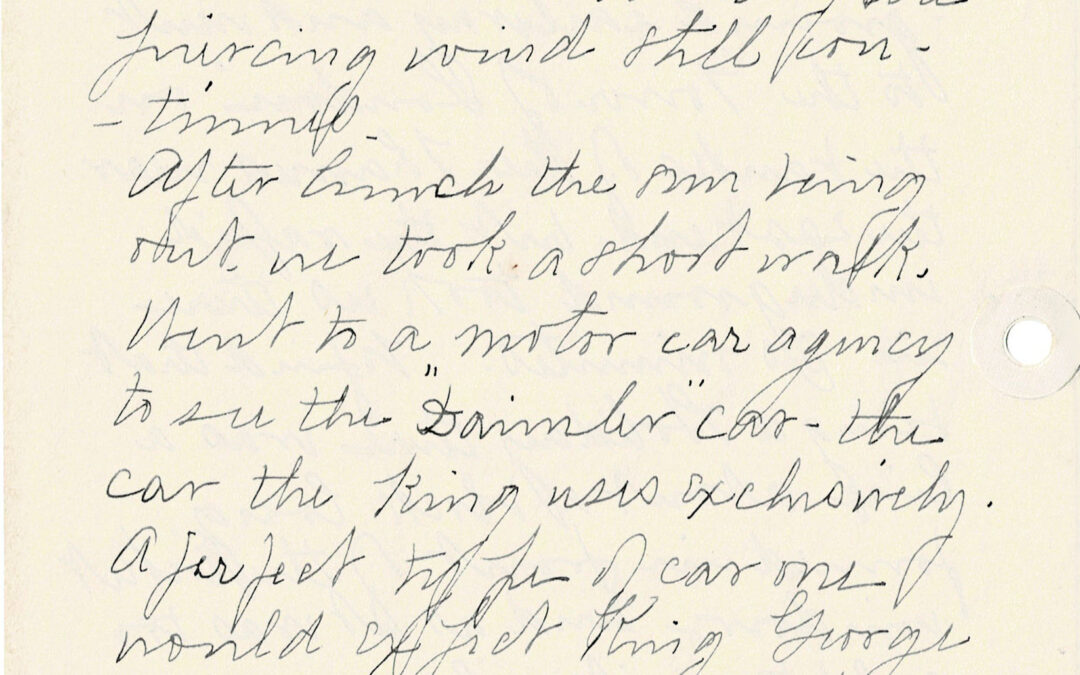 piercing wind still con-
-tinues.
After lunch the sun being
out, we took a short walk.
Went to a motor car agency
to see the "Daimler" car - the
car the King uses exclusively.
A perfect type of car one
would expect King George